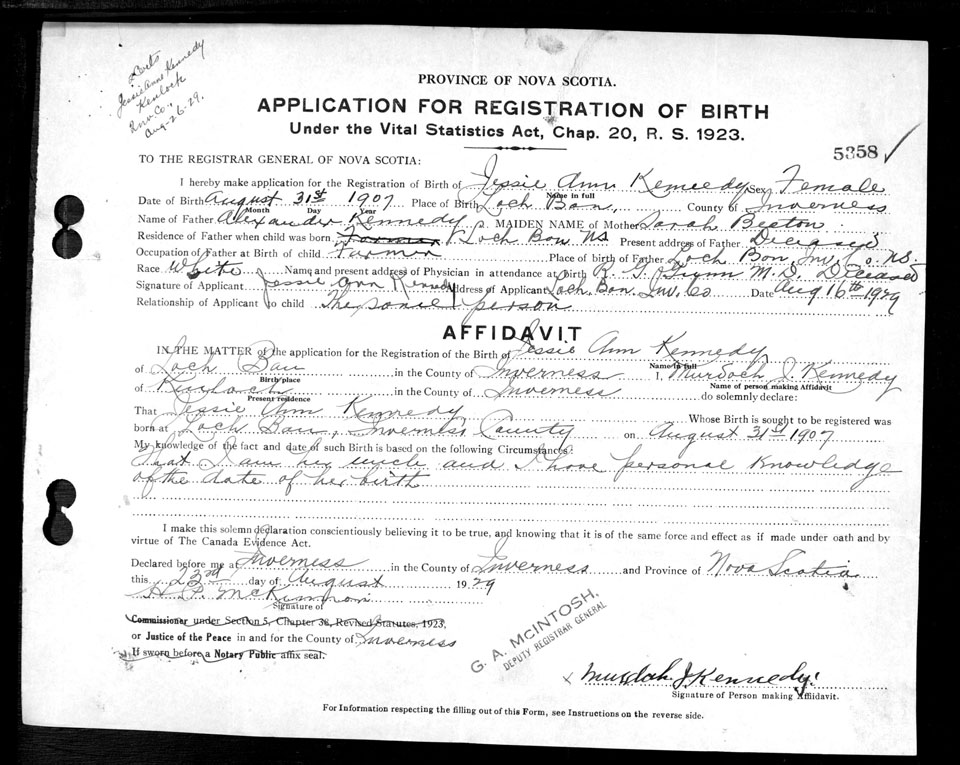 Certs
Jessie Anne Kennedy
Kenlock
Inv. Co.,
Aug-26-29.
PROVINCE OF NOVA SCOTIA.
APPLICATION FOR REGISTRATION OF BIRTH
Under the Vital Statistics Act, Chap. 20, R. S. 1923.
5358
TO THE REGISTRAR GENERAL OF NOVA SCOTIA:
I hereby make application for the Registration of Birth of Jessie Ann Kennedy Sex Female
Name in full
Date of Birth August 31st 1907 Place of Birth Loch Ban, County of Inverness
Month Day Year
Name of Father Alexander Kennedy 2. MAIDEN NAME of Mother Sarah Beaton
Residence of Father when child was born Farmer Loch Bon NS Present address of Father Deceased
Occupation of Father at Birth of child Farmer Place of birth of Father Loch Bon, Inv. Co. NS.
Race White Name and present address of Physician in attendance at birth R. G. M. D. Deceased
Signature of Applicant Jessie Ann Kennedy Address of Applicant Loch Ban, Inv. Co Date Aug 16th 1929
Relationship of Applicant to child The same person
AFFIDAVIT
IN THE MATTER of the application for the Registration of the Birth of Jessie Ann Kennedy
Name in full
of Loch Ban in the County of Inverness I, Murdoch J. Kennedy
Birth place Name of person making Affidavit
of Kinloch in the County of Inverness do solemnly declare:
Present residence
That Jessie Ann Kennedy, Whose Birth is sought to be registered was
born at Loch Ban, Inverness County on August 31st 1907
My knowledge of the fact and date of such Birth is based on the following Circumstances:
That I am her uncle and I have personal knowledge
of the date of her birth
I make this solemn declaration conscientiously believing it to be true, and knowing that it is of the same force and effect as if made under oath and by
virtue of The Canada Evidence Act.
Declared before me at Inverness in the County of Inverness and Province of Nova Scotia
this 23rd day of August 1929
H. P. McKinnon
Signature of
Commissioner under Section 5, Chapter 38, Revised Statutes, 1923,
or Justice of the Peace in and for the County of Inverness
If sworn before a Notary Public affix seal.
G. A. McINTOSH,
DEPUTY REGISTRAR GENERAL
x Murdoch J. Kennedy
Signature of Person making Affidavit.
For Information respecting the filling out of this Form, see Instructions on the reverse side.